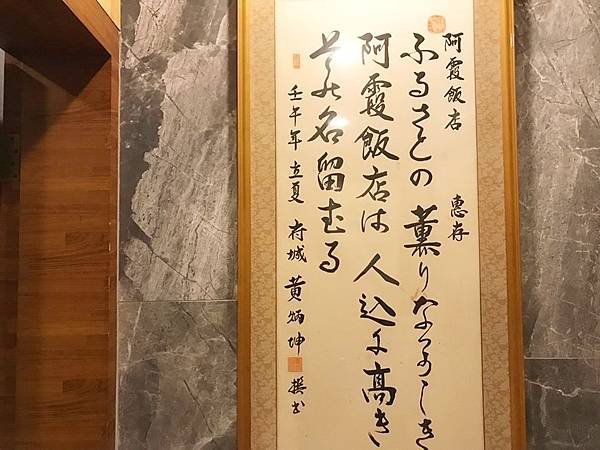 阿霞飯店 惠存
ふるさとの 薫りなつかしき
阿霞飯店は 人込に高き
名留むる
壬午年 立夏 府城 黃炳坤 撰書